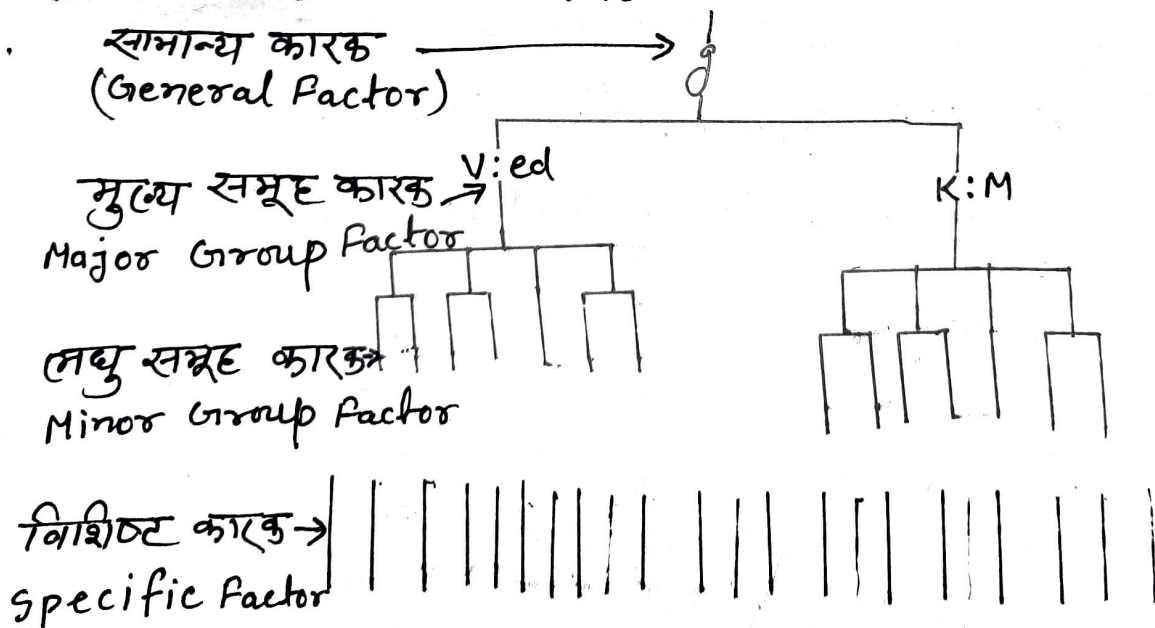 सामान्य कारक
(General Factor)
g
V:ed
K:M
मुख्य समूह कारक
Major Group Factor
लघु समूह कारक
Minor Group Factor
विशिष्ट कारक
Specific Factor